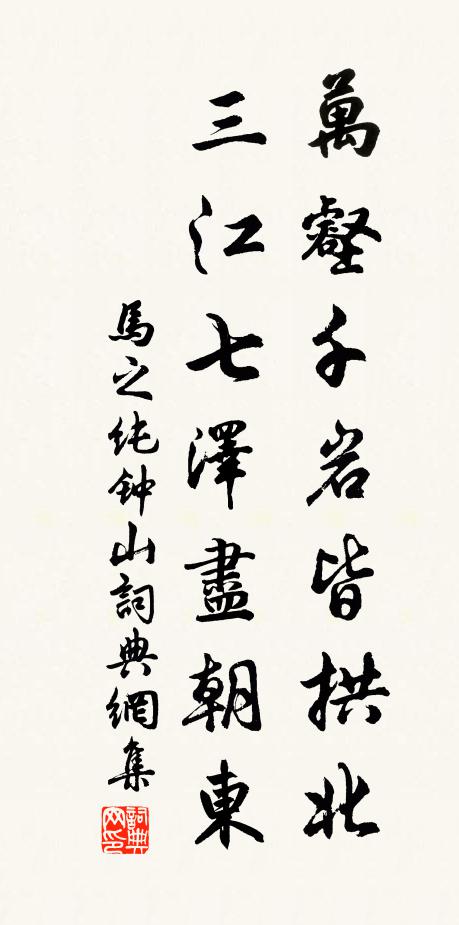 萬壑千岩皆拱北
三江七澤盡朝東
馬之纯钟山詞典網集
詞典网印